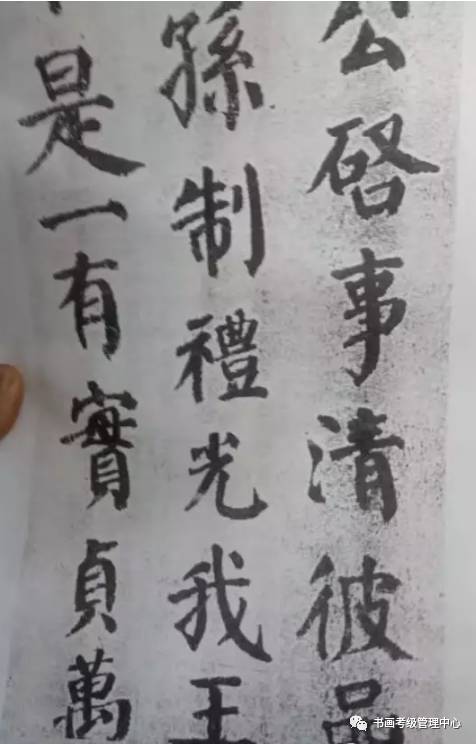 公啓事清彼品
孫制禮光我王
是一有實貞萬
书画考级管理中心